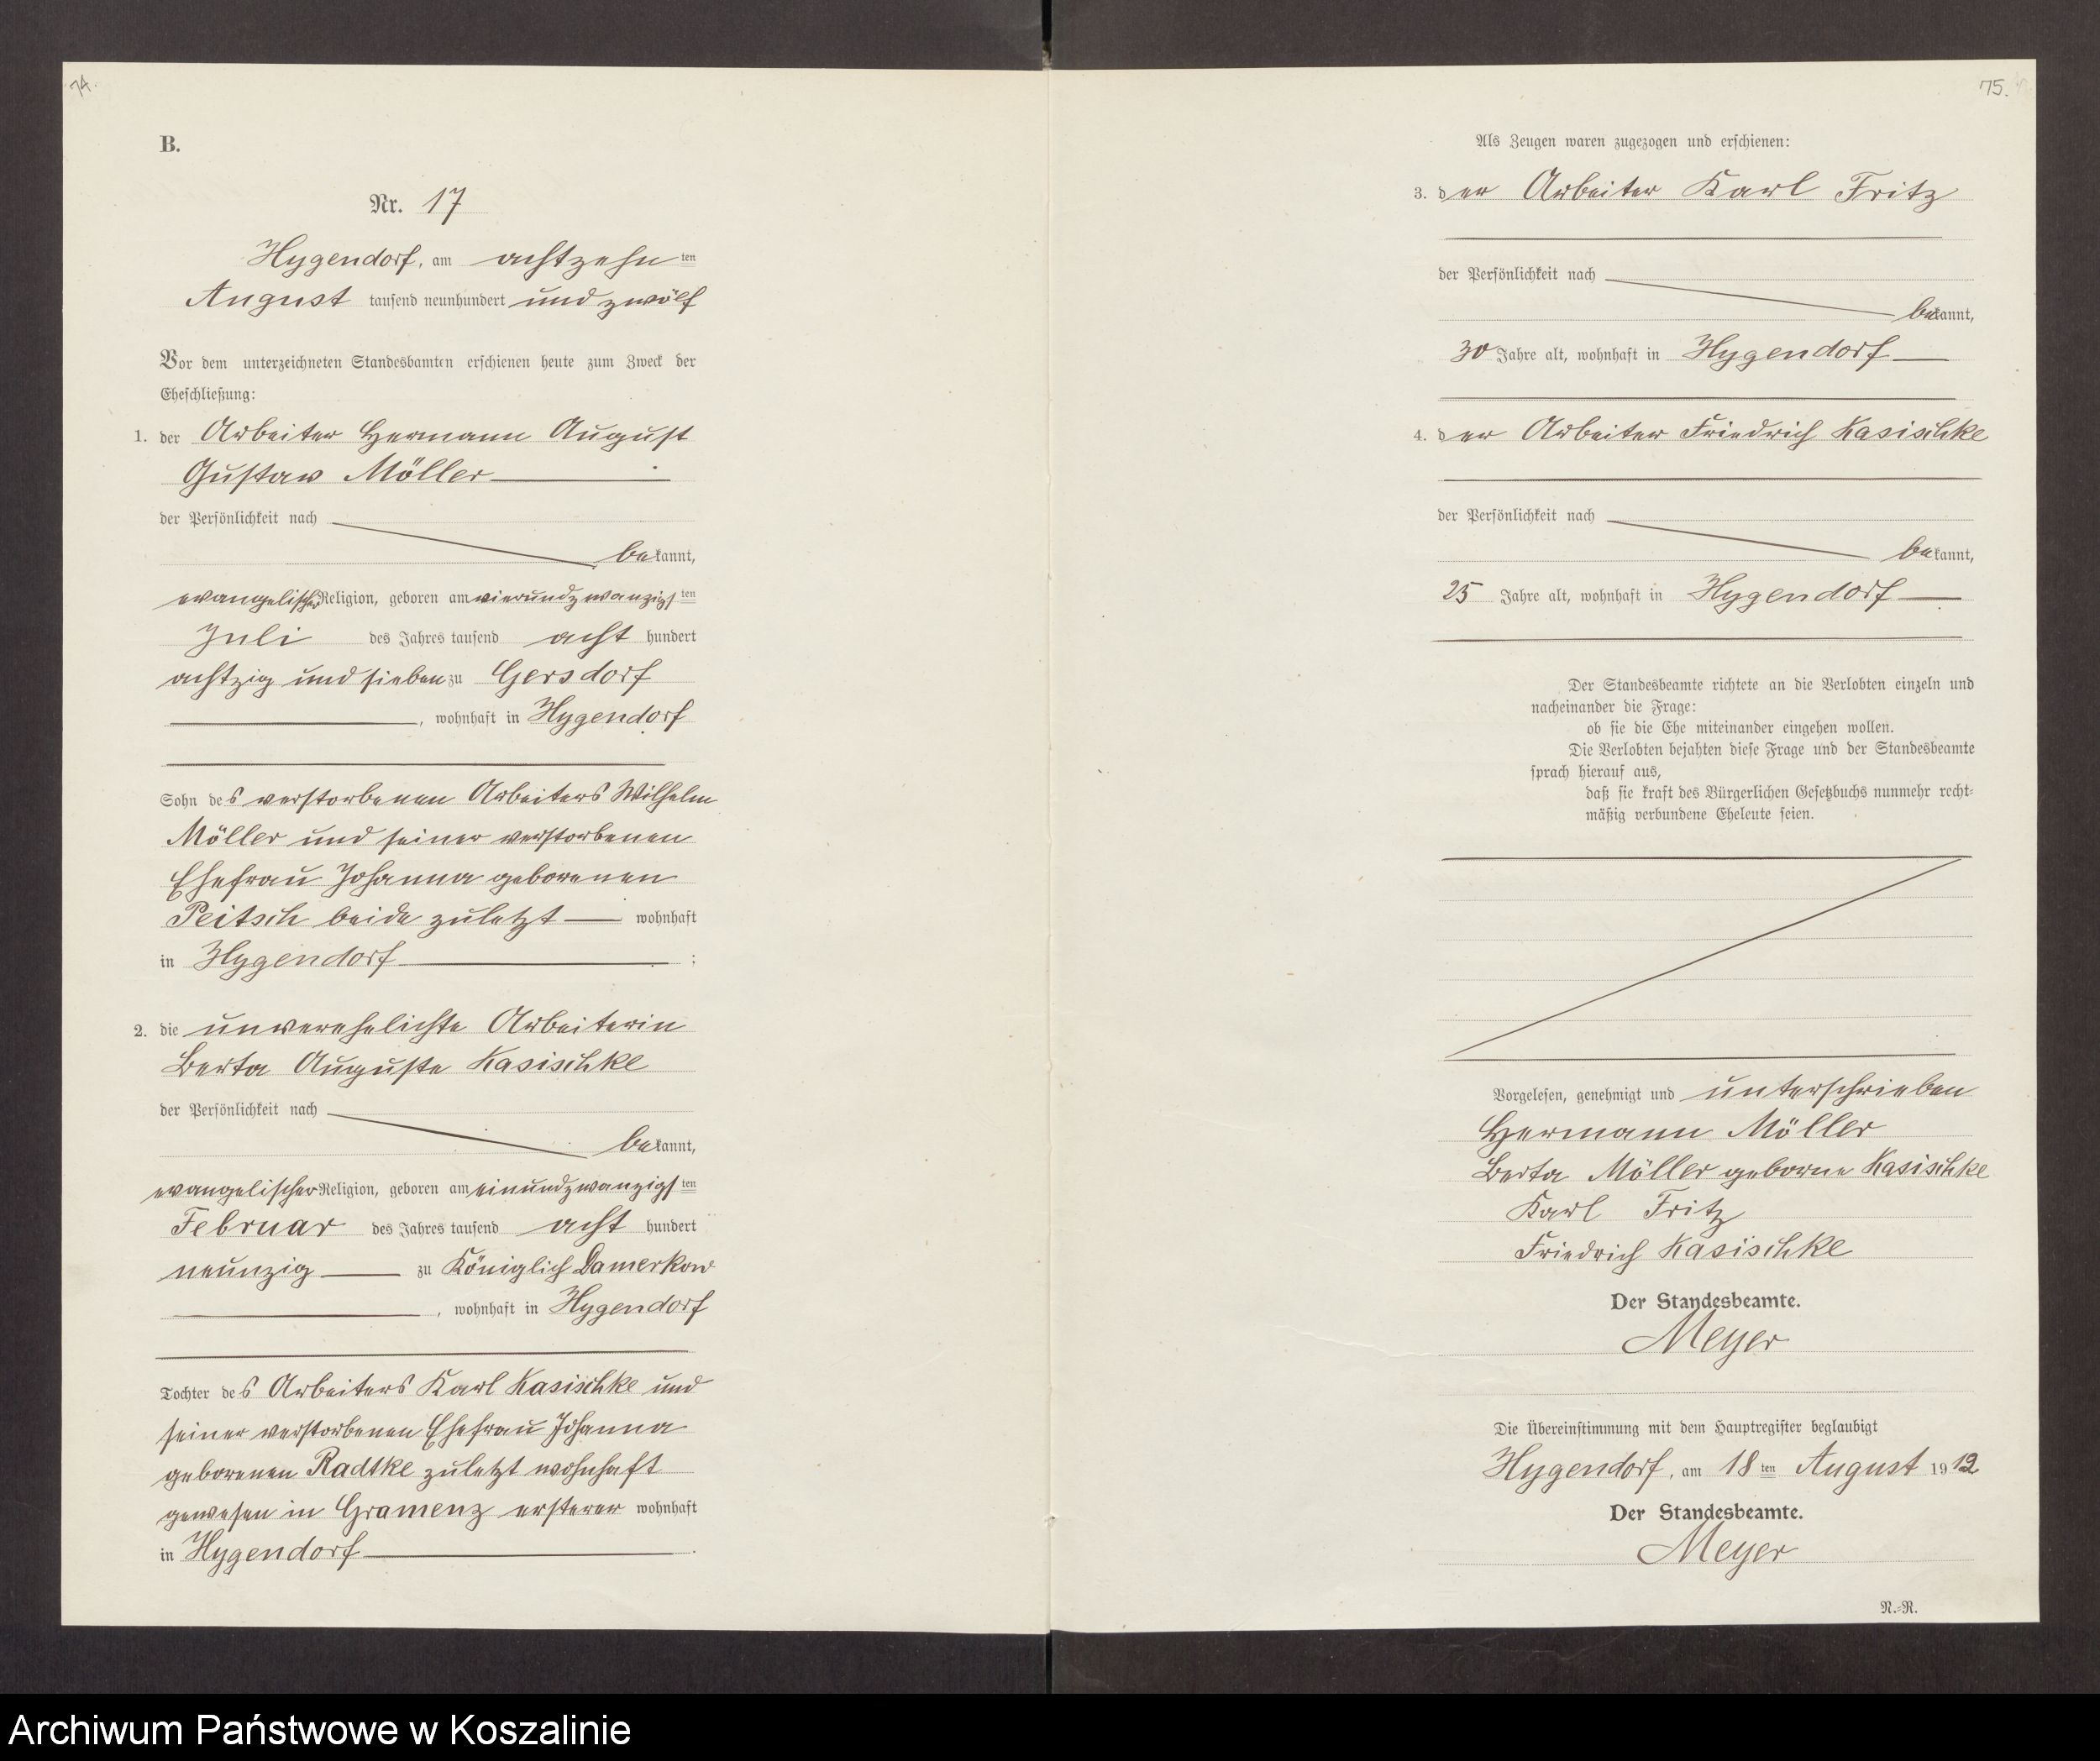 74.
B.
Nr. 17
Hygendorf, am achtzehn ten
August tausend neunhundert und zwölf
Vor dem unterzeichneten Standesbamten erschienen heute zum Zweck der
Eheschließung:
1. der Arbeiter Hermann August
Gustav Möller
der Persönlichkeit nach
bekannt,
evangelischer Religion, geboren am vierundzwanzigs ten
Juli des Jahres tausend acht hundert
achtzig und sieben zu Gersdorf
, wohnhaft in Hygendorf
Sohn des verstorbenen Arbeiters Wilhelm
Möller und seiner verstorbenen
Ehefrau Johanna geborenen
Peitsch beide zuletzt wohnhaft
in Hygendorf ;
2. die unverehelichte Arbeiterin
Berta Auguste Kasischke
der Persönlichkeit nach
bekannt,
evangelischer Religion, geboren am einundzwanzigs ten
Februar des Jahres tausend acht hundert
neunzig zu Königlich Damerkow
, wohnhaft in Hygendorf
Tochter des Arbeiters Karl Kasischke und
seiner verstorbenen Ehefrau Johanna
geborenen Radtke zuletzt wohnhaft
gewesen in Gramenz ersterer wohnhaft
in Hygendorf .
75.
Als Zeugen waren zugezogen und erschienen:
3. der Arbeiter Karl Fritz
der Persönlichkeit nach
bekannt,
30 Jahre alt, wohnhaft in Hygendorf
4. der Arbeiter Friedrich Kasischke
der Persönlichkeit nach
bekannt,
25 Jahre alt, wohnhaft in Hygendorf
Der Standesbeamte richtete an die Verlobten einzeln und
nacheinander die Frage:
ob sie die Ehe miteinander eingehen wollen.
Die Verlobten bejahten diese Frage und der Standesbeamte
sprach hierauf aus,
daß sie kraft des Bürgerlichen Gesetzbuchs nunmehr recht-
mäßig verbundene Eheleute seien.
Vorgelesen, genehmigt und unterschrieben
Hermann Möller
Berta Möller geborne Kasischke
Karl Fritz
Friedrich Kasischke
Der Standesbeamte.
Meyer
Die Übereinstimmung mit dem Hauptregister beglaubigt
Hygendorf, am 18 ten August 1912
Der Standesbeamte.
Meyer
N.-R.
Archiwum Państwowe w Koszalinie